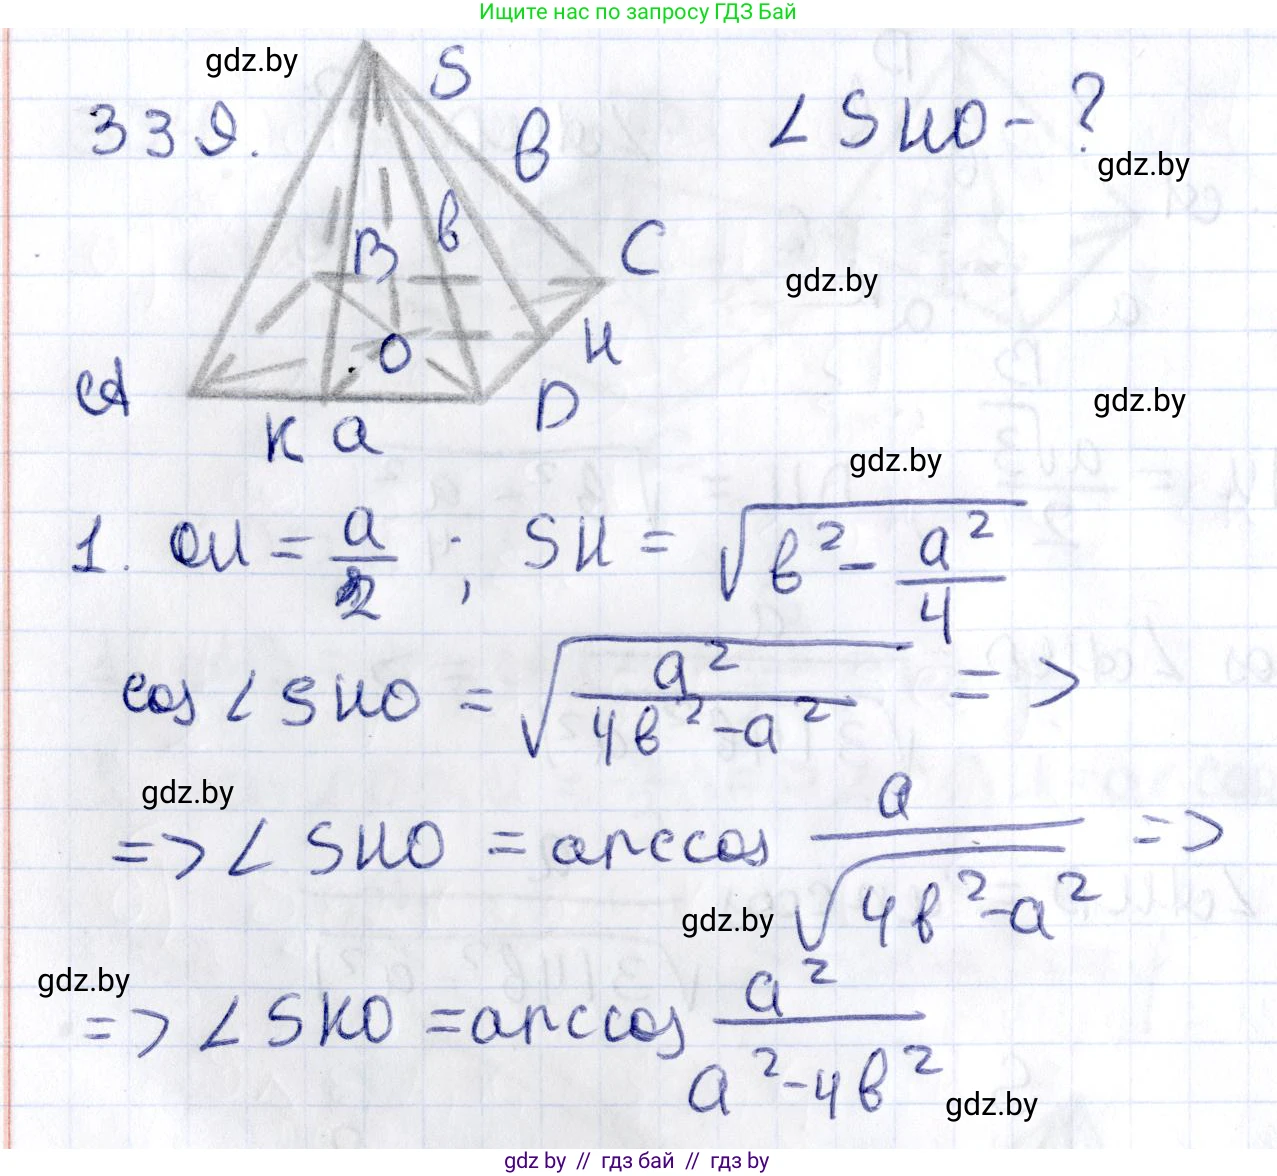 Ищите нас по запросу ГДЗ Бай
gdz.by
339.
S
∠SHO - ?
в
gdz.by
в
B
C
gdz.by
O
H
A
D
gdz.by
K a
gdz.by
1. OH = a/2 ; SH = √(в² - a²/4)
cos ∠SHO = √(a²/(4в² - a²)) =>
gdz.by
=> ∠SHO = arccos a/√(4в² - a²) =>
gdz.by
gdz.by
=> ∠SKO = arccos a²/(a² - 4в²)
gdz.by
gdz.by // гдз бай // гдз by